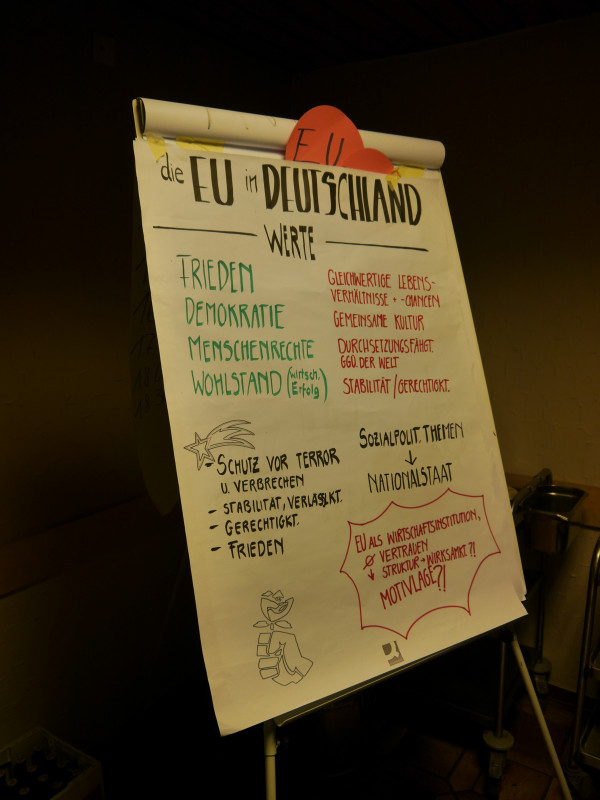 EU
die EU in DEUTSCHLAND
WERTE
FRIEDEN
DEMOKRATIE
MENSCHENRECHTE
WOHLSTAND (wirtsch.
Erfolg)
GLEICHWERTIGE LEBENS-
VERHÄLTNISSE + -CHANCEN
GEMEINSAME KULTUR
DURCHSETZUNGSFÄHGT.
GGÜ. DER WELT
STABILITÄT/GERECHTIGKT.
- SCHUTZ VOR TERROR
U. VERBRECHEN
- STABILITÄT, VERLÄSSLKT.
- GERECHTIGKT.
- FRIEDEN
SOZIALPOLIT. THEMEN
↓
NATIONALSTAAT
EU ALS WIRTSCHAFTSINSTITUTION,
Ø VERTRAUEN
↓ STRUKTUR → WIRKSAMKT ?!
MOTIVLAGE?!